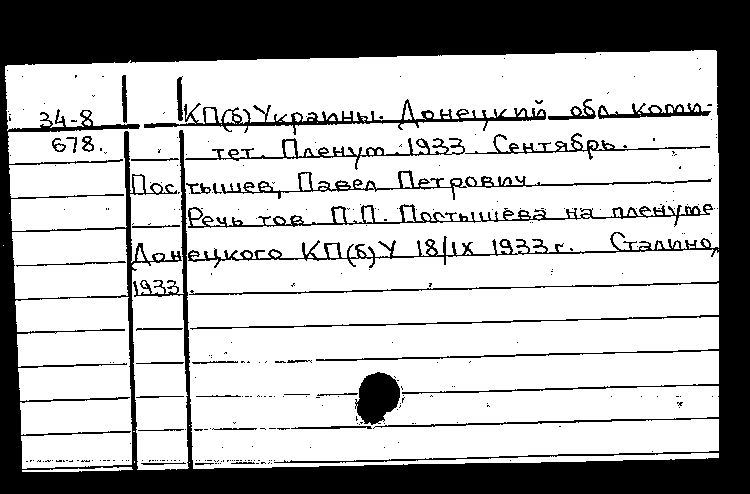 34-8 КП(б) Украины. Донецкий обл. коми-
678. тет. Пленум. 1933. Сентябрь.
Постышев, Павел Петрович.
Речь тов. П.П. Постышева на пленуме
Донецкого КП(б)У 18/IX 1933 г. Сталино,
1933.